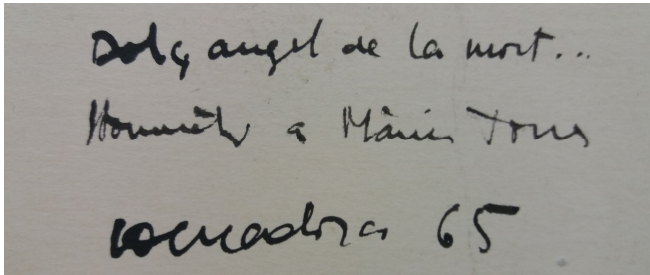 Dolç angel de la mort...
Homenatge a Màrius Torres
65